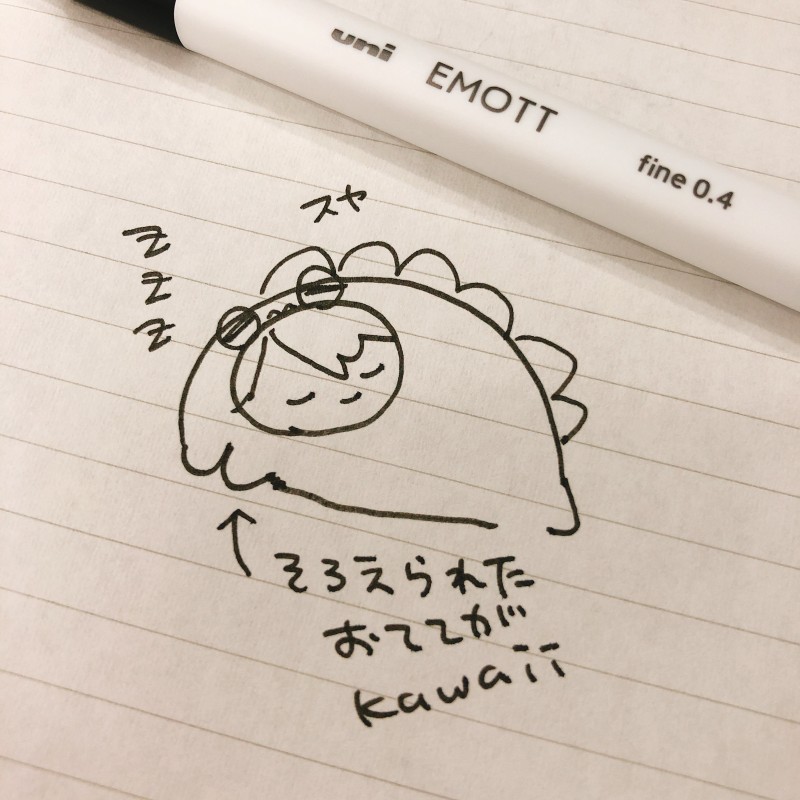 uni EMOTT fine 0.4
スヤ
Z
Z
Z
そろえられた
おててが
kawaii